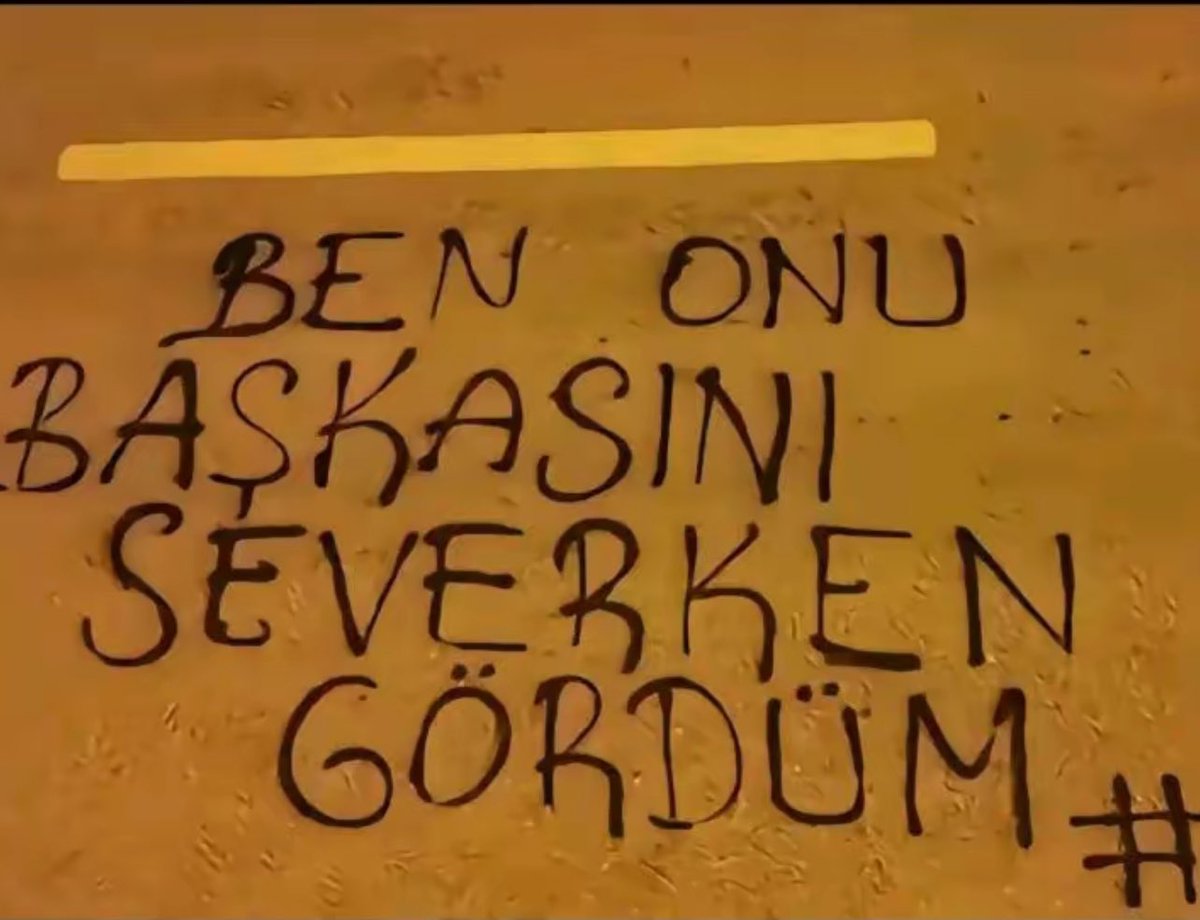 BEN ONU
BAŞKASINI
SEVERKEN
GÖRDÜM
#